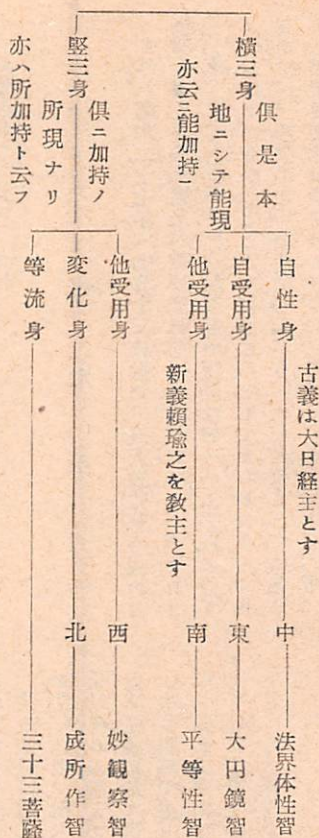 横三身
俱是本
地ニシテ能現
亦云ニ能加持ー
古義は大日経主とす
自性身
中
法界体性智
自受用身
東
大円鏡智
他受用身
南
平等性智
新義頼瑜之を教主とす
竪三身
俱ニ加持ノ
所現ナリ
亦ハ所加持ト云フ
他受用身
西
妙観察智
変化身
北
成所作智
等流身
三十三菩薩